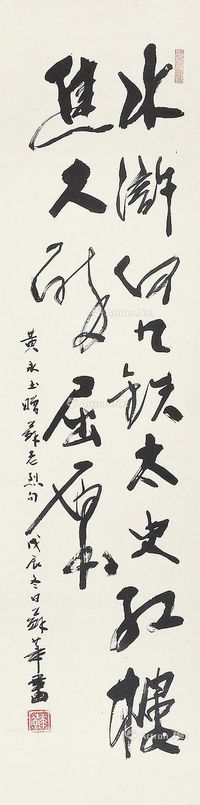 水滸何九鉄太史紅樓
焦大醉屈原
黃永玉贈蘇老烈句戊辰冬日蘇華書